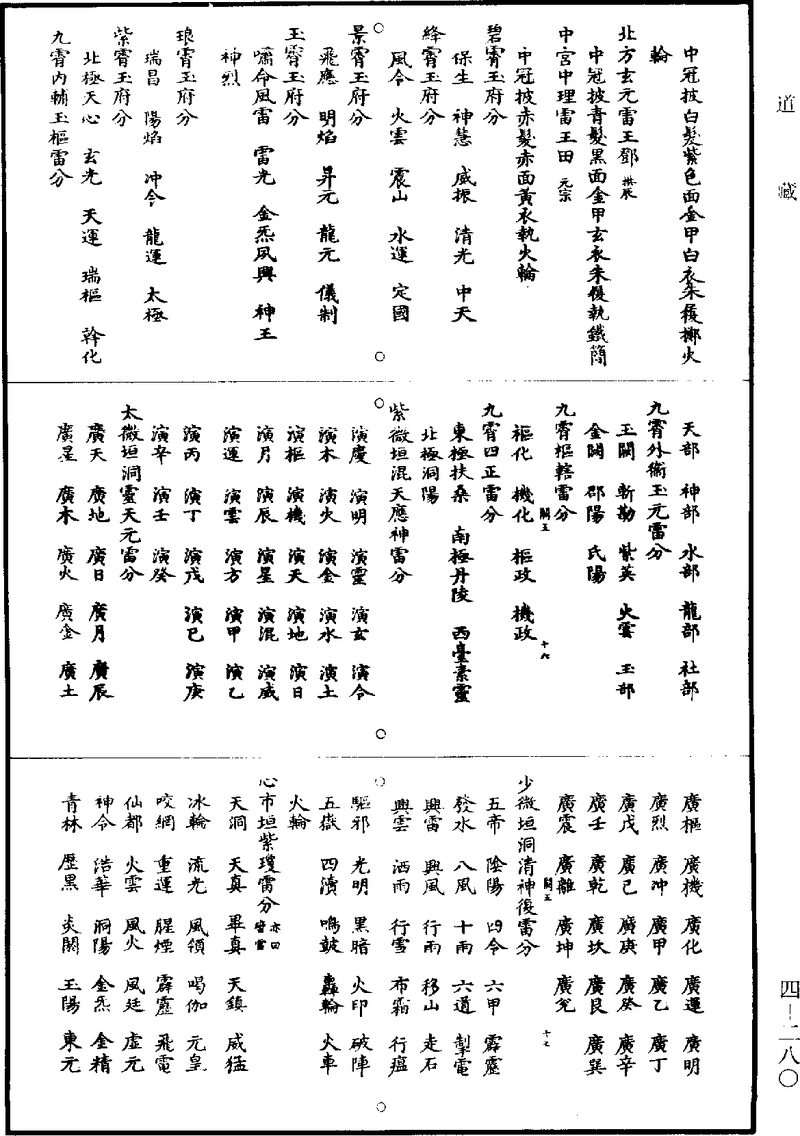 道藏
中冠披白髮紫色面金甲白衣朱履擲火
輪
北方玄元雷王鄧 拱辰
中冠披青髮黑面金甲玄衣朱履執鐵簡
中宮中理雷王田 元宗
中冠披赤髮赤面黃衣執火輪
碧霄玉府分
保生 神慧 威振 清光 中天
絳霄玉府分
風令 火雲 震山 水運 定國
景霄玉府分
飛應 明焰 昇元 龍元 儀制
玉霄玉府分
嘯命風雷 雷光 金炁夙興 神王
神烈
琅霄玉府分
瑞昌 陽焰 冲令 龍運 太極
紫霄玉府分
北極天心 玄光 天運 瑞樞 斡化
九霄內輔玉樞雷分
天部 神部 水部 龍部 社部
九霄外衛玉元雷分
玉闕 斬勘 紫英 火雲 玉部
金闕 郡陽 氏陽
九霄樞轄雷分
關五 十六
樞化 機化 樞政 機政
九霄四正雷分
東極扶桑 南極丹陵 西臺素靈
北極洞陽
紫微垣混天應神雷分
演慶 演明 演靈 演玄 演令
演木 演火 演金 演水 演土
演樞 演機 演天 演地 演日
演月 演辰 演星 演混 演威
演運 演雲 演方 演甲 演乙
演丙 演丁 演戊 演已 演庚
演辛 演壬 演癸
太微垣洞靈天元雷分
廣天 廣地 廣日 廣月 廣辰
廣星 廣木 廣火 廣金 廣土
廣樞 廣機 廣化 廣運 廣明
廣烈 廣冲 廣甲 廣乙 廣丁
廣戊 廣己 廣庚 廣癸 廣辛
廣壬 廣乾 廣坎 廣艮 廣巽
廣震 廣離 廣坤 廣兌
關五 十七
少微垣洞清神復雷分
五帝 陰陽 四令 六甲 霹靂
發水 八風 十雨 六道 掣電
興雷 興風 行雨 移山 走石
興雲 洒雨 行雪 布霜 行瘟
驅邪 光明 黑暗 火印 破陣
五嶽 四瀆 鳴鼓 轟輪 火車
火輪
心市垣紫瓊雷分 亦曰 雷
天洞 天真 畢真 天鎮 威猛
冰輪 流光 風領 喝伽 元皇
咬網 重運 腥煙 霹靂 飛電
仙都 火雲 風火 風廷 虛元
神令 浩華 洞陽 金炁 金精
青林 歷黑 炎關 玉陽 東元
四—二八〇